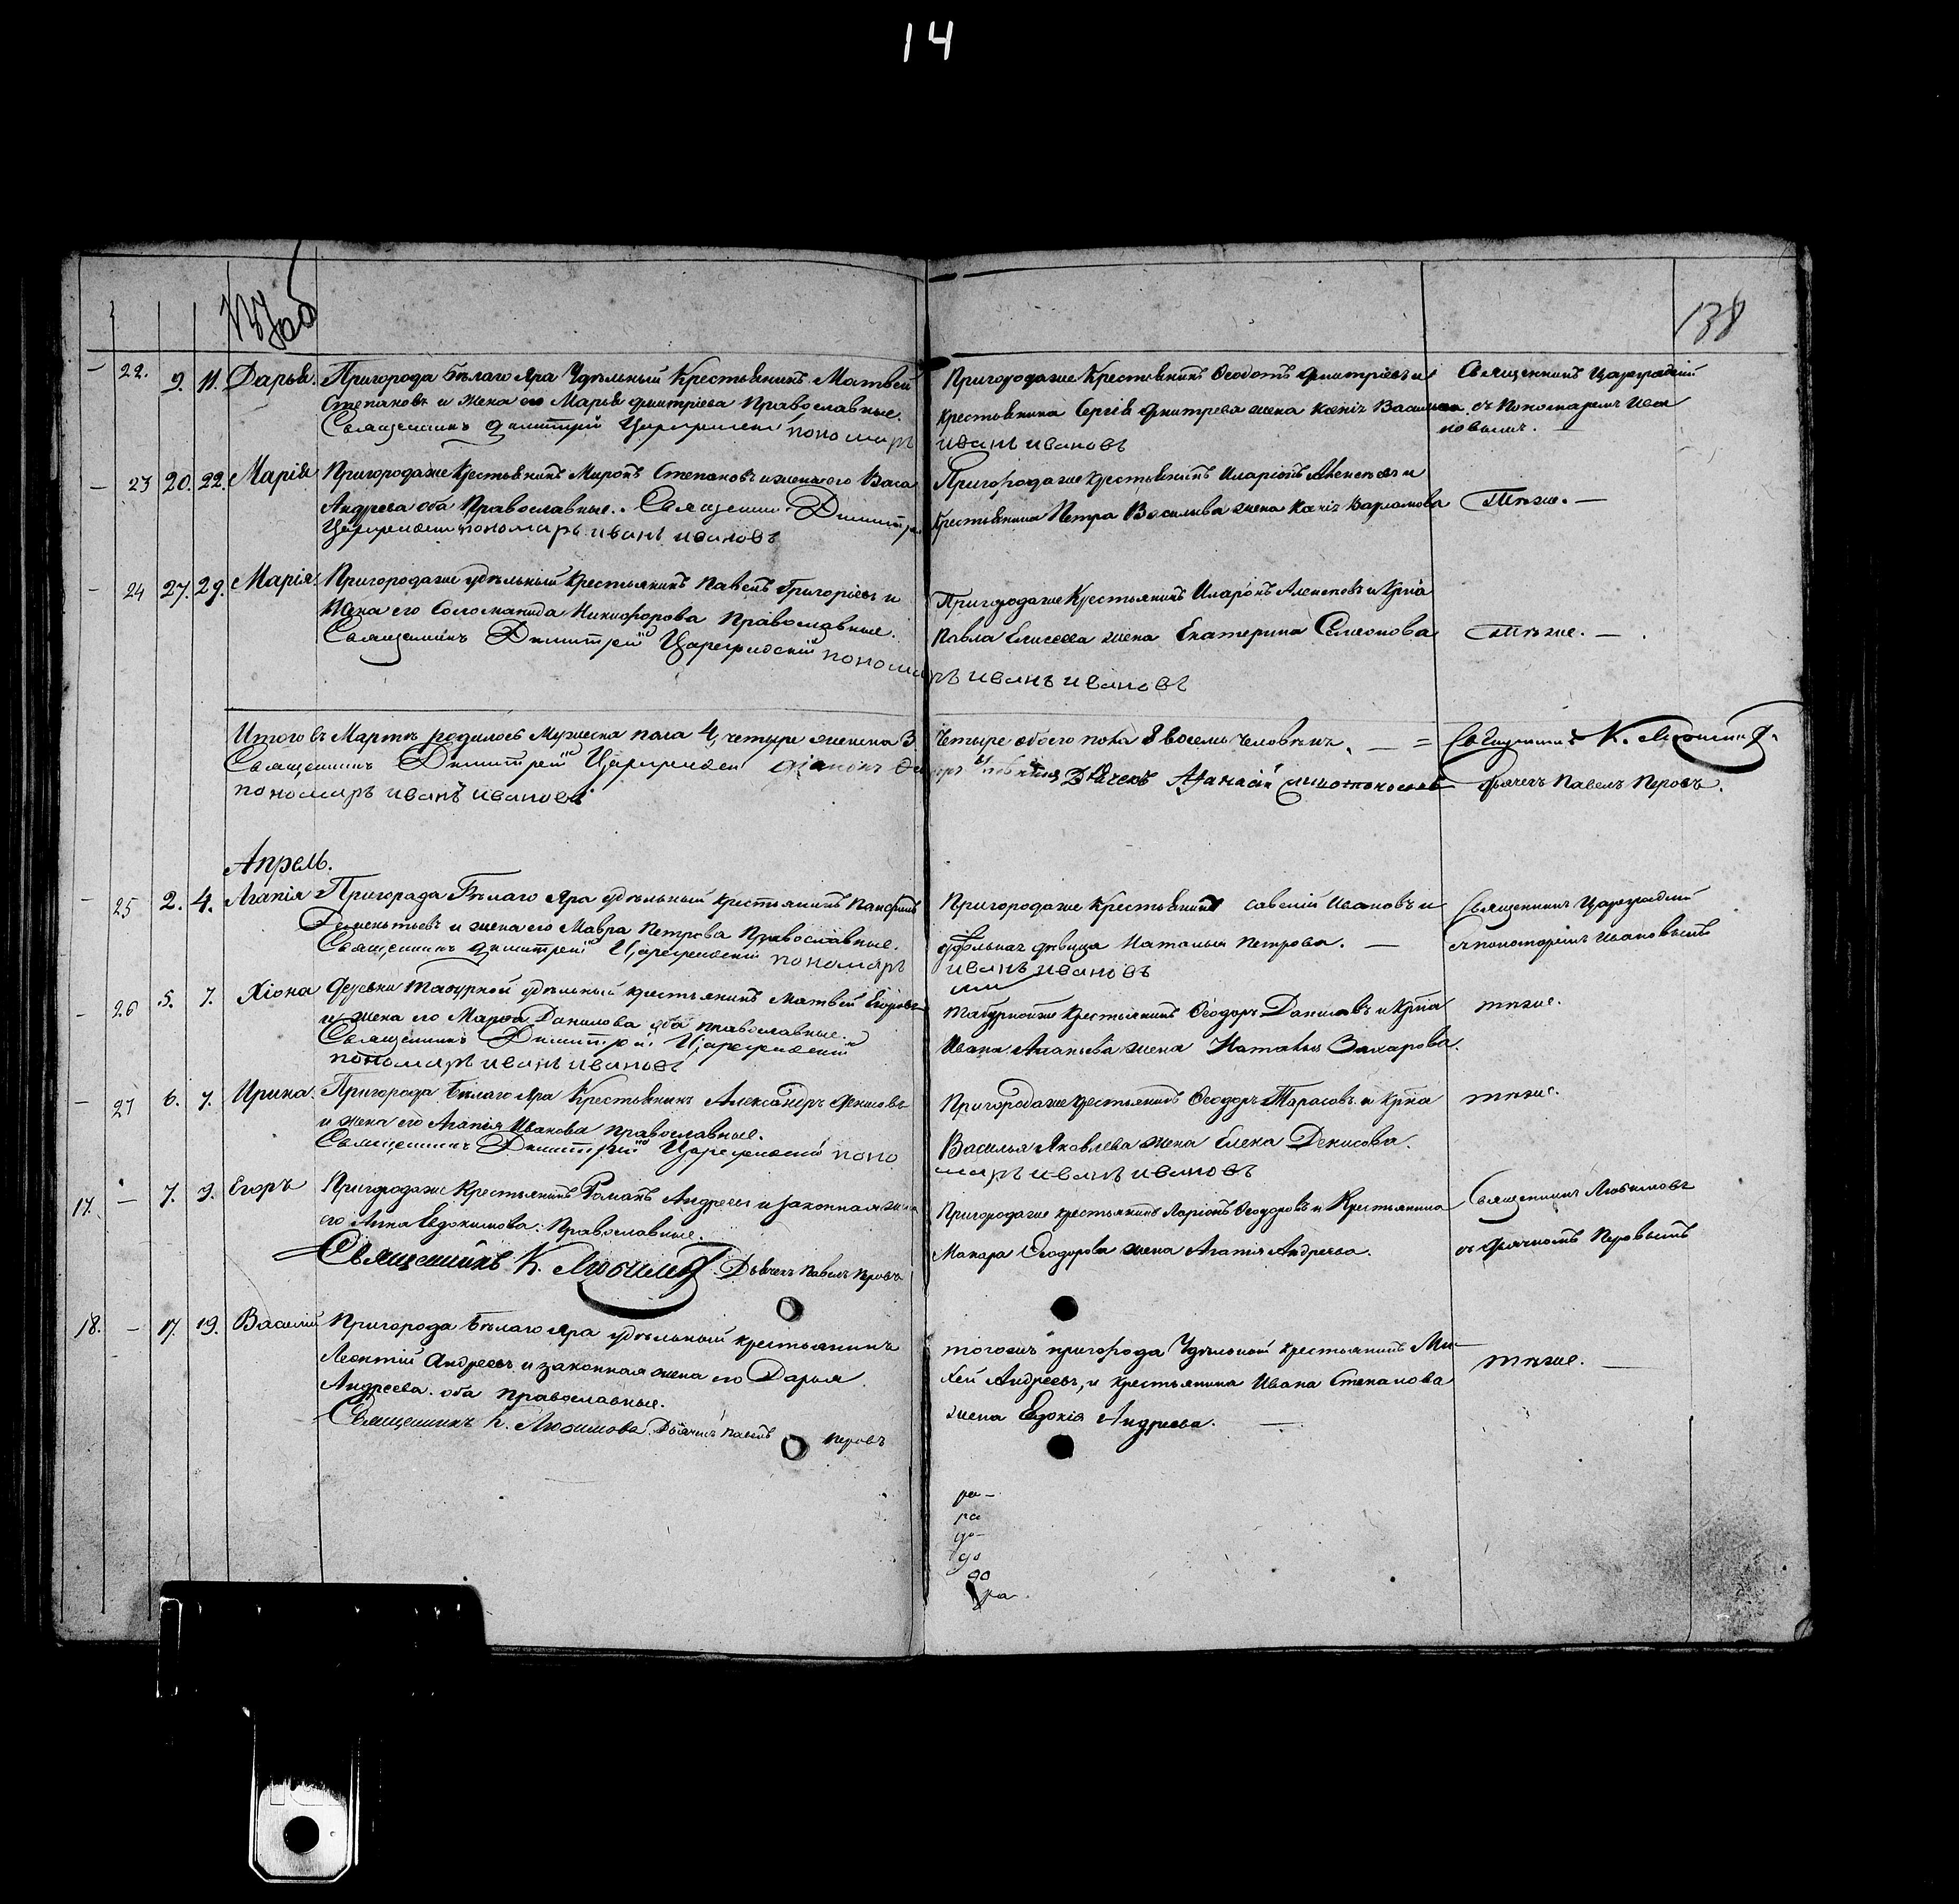 14
137 об
138
22. 9. 11. Дарья. Пригорода Бѣлаго Яра Удѣльный Крестьянинъ Матвей
Степановъ и жена его Марья Дмитріева Православные.
Священникъ Димитрий Цареградский пономарь
Пригородаже Крестьянинъ Ѳеодотъ Дмитріевъ и
Крестьянина Сергія Дмитрева жена
иванъ ивановъ
Священникъ Цареградскій
съ Пономаремъ Ива
новымъ.
23 20. 22. Марія Пригородаже Крестьянинъ Миронъ Степановъ и жена его Васа
Андрева оба Православные. Священник Димитри
Цареградский пономарь иванъ ивановъ
Пригородаже крестьянинъ Иларіонъ Алексеевъ и
Крестьянина Петра Васильва жена Варламова
Тѣже.
24 27. 29. Марія Пригородаже удѣльный Крестьянинъ Павелъ Григоріевъ и
Жена его Соломанида Никифорова Православные.
Священникъ Димитрей Цареградский пономарь иванъ ивановъ
Пригородаже Крестьянинъ Иларонъ Алексеевъ и Крна
Павла Елисеева жена Екатерина Семонова
Тѣже.
Итого въ Мартѣ родилось Мужеска пола 4, четыре женска
Священникъ Димитрей Цареградский
пономарь иванъ ивановъ
Четыре обоего пола 8 восемь человѣкъ.
Дьячекъ Афанасій
Дьячекъ Павелъ Перовъ.
Апрель.
25 2. 4. Агапія Пригорода Бѣлаго Яра удѣльный крестьянинъ
Дементьевъ и жена его Мавра Петрова Православные.
Священникъ Димитрей Цареградский пономарь
Пригородаже Крестьянинъ Савелій Ивановъ и
удѣльная дѣвица Наталья Петрова.
иванъ ивановъ
Священникъ Цареградский
с пономаремъ Ивановымъ
26 5. 7. Хіона Деревни Табурной удѣльный крестьянинъ Матвей Егоровъ
и жена его Марфа Данилова оба православные.
Священникъ Димитрей Цареградский
пономарь иванъ ивановъ
Табурнойже Крестьянинъ Ѳеодоръ Даниловъ и Крна
Ивана Ананьева жена Наталья Захарова.
тѣже.
27 6. 7. Ирина. Пригорода Бѣлаго Яра Крестьянинъ Александръ Денисовъ
и жена его Агапія Иванова православные.
Священникъ Димитрей Цареградский поно
Пригородаже крестьянинъ Ѳеодоръ Тарасовъ и крна
Василья Яковлева жена Елена Денисова.
марь иванъ ивановъ
тѣже.
17. 7. 9. Егоръ Пригородаже Крестьянинъ Романъ Андреевъ и законная жена
его Анна Евдокимова. Православные.
Священникъ К. Любимовъ Дьячекъ Павелъ Перовъ
Пригородаже крестьянинъ Ларіонъ Ѳеодоровъ и Крестьянина
Макара Ѳеодорова жена Агапія Андреева.
Священникъ Любимовъ
съ Дьячкомъ Перовымъ
18. 17. 19. Василій Пригорода Бѣлаго Яра удѣльный крестьянинъ
Леонтій Андреевъ и законная жена его Дарья
Андреева. оба Православные.
Священникъ К. Любимовъ. Дьячекъ Павелъ Перовъ
тогожъ пригорода Удѣльной крестьянинъ Ми
хей Андреевъ, и крестьянина Ивана Степанова
жена Евдокія Андреева.
тѣже.
ра-
ра
до-
до
до
ра.